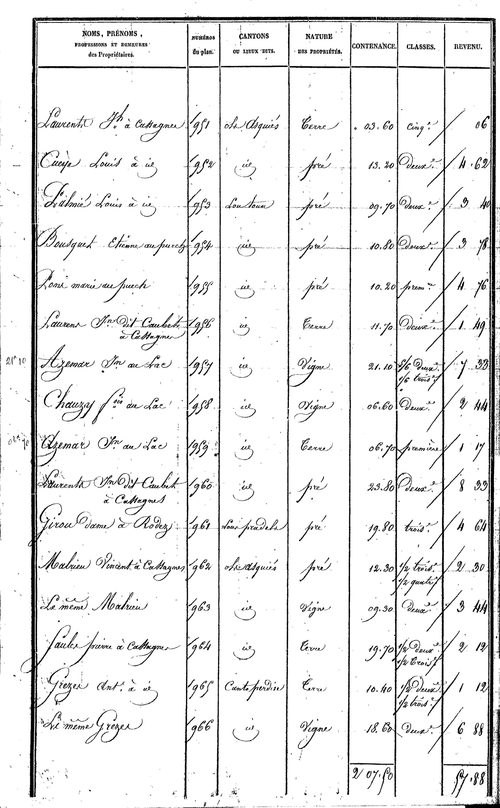 NOMS, PRÉNOMS, PROFESSIONS ET DEMEURES des Propriétaires. NUMÉROS du plan. CANTONS OU LIEUX DITS. NATURE DES PROPRIÉTÉS. CONTENANCE. CLASSES. REVENU.
Laurens Jh. à Cassagnes 951 Terre 03.60 cinq. 06
Louis à id 952 id pré 13.20 deux. 4.62
Louis à id 953 pré 09.70 deux. 3 40
Bousquet Etienne au puech 954 id pré 10.80 deux. 3 78
marie au puech 955 id pré 10.20 prem. 4 76
Laurens Jn. dit Caubet à Cassagnes 956 id Terre 11.70 Deux. 1 49
Azemar Jn. au Lac 957 id Vigne 21.10 deux. trois. 7 33
Chauzy au Lac 958 id Vigne 06.60 Deux. 2 44
Azemar Jn. au Lac 959 id Terre 06.70 première 1 17
Laurens Jn. dit Caubet à Cassagnes 960 id pré 23.80 deux. 8 33
Girou dame à Rodez 961 pré 19.80 trois. 4 64
Mahieu Vincent à Cassagnes 962 pré 12.30 1/2 trois. 1/2 quatr. 2 30
Le même Mahieu 963 id Vigne 09.30 deux. 3 44
pierre à Cassagnes 964 id Terre 19.70 1/2 deux. 1/2 trois. 2 12
Grezes Ant. à id 965 Terre 10.40 1/2 deux. 1/2 trois. 1 12
Le même Grezes 966 id Vigne 18.60 deux. 6 88
2 07.50 57.88